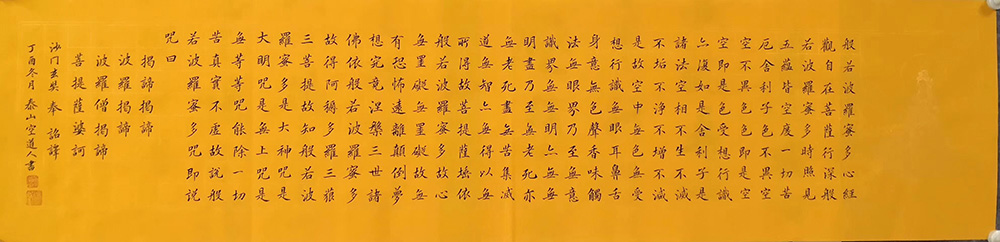 般若波羅蜜多心經
觀自在菩薩行深般
若波羅蜜多時照見
五蘊皆空度一切苦
厄舍利子色不異空
空不異色色即是空
空即是色受想行識
亦復如是舍利子是
諸法空相不生不滅
不垢不淨不增不減
是故空中無色無受
想行識無眼耳鼻舌
身意無色聲香味觸
法無眼界乃至無意
識界無無明亦無無
明盡乃至無老死亦
無老死盡無苦集滅
道無智亦無得以無
所得故菩提薩埵依
般若波羅蜜多故心
無罣礙無罣礙故無
有恐怖遠離顛倒夢
想究竟涅槃三世諸
佛依般若波羅蜜多
故得阿耨多羅三藐
三菩提故知般若波
羅蜜多是大神咒是
大明咒是無上咒是
無等等咒能除一切
苦真實不虛故說般
若波羅蜜多咒即說
咒曰
揭諦揭諦
波羅揭諦
波羅僧揭諦
菩提薩婆訶
沙门玄奘奉詔譯
丁酉冬月泰山空道人書